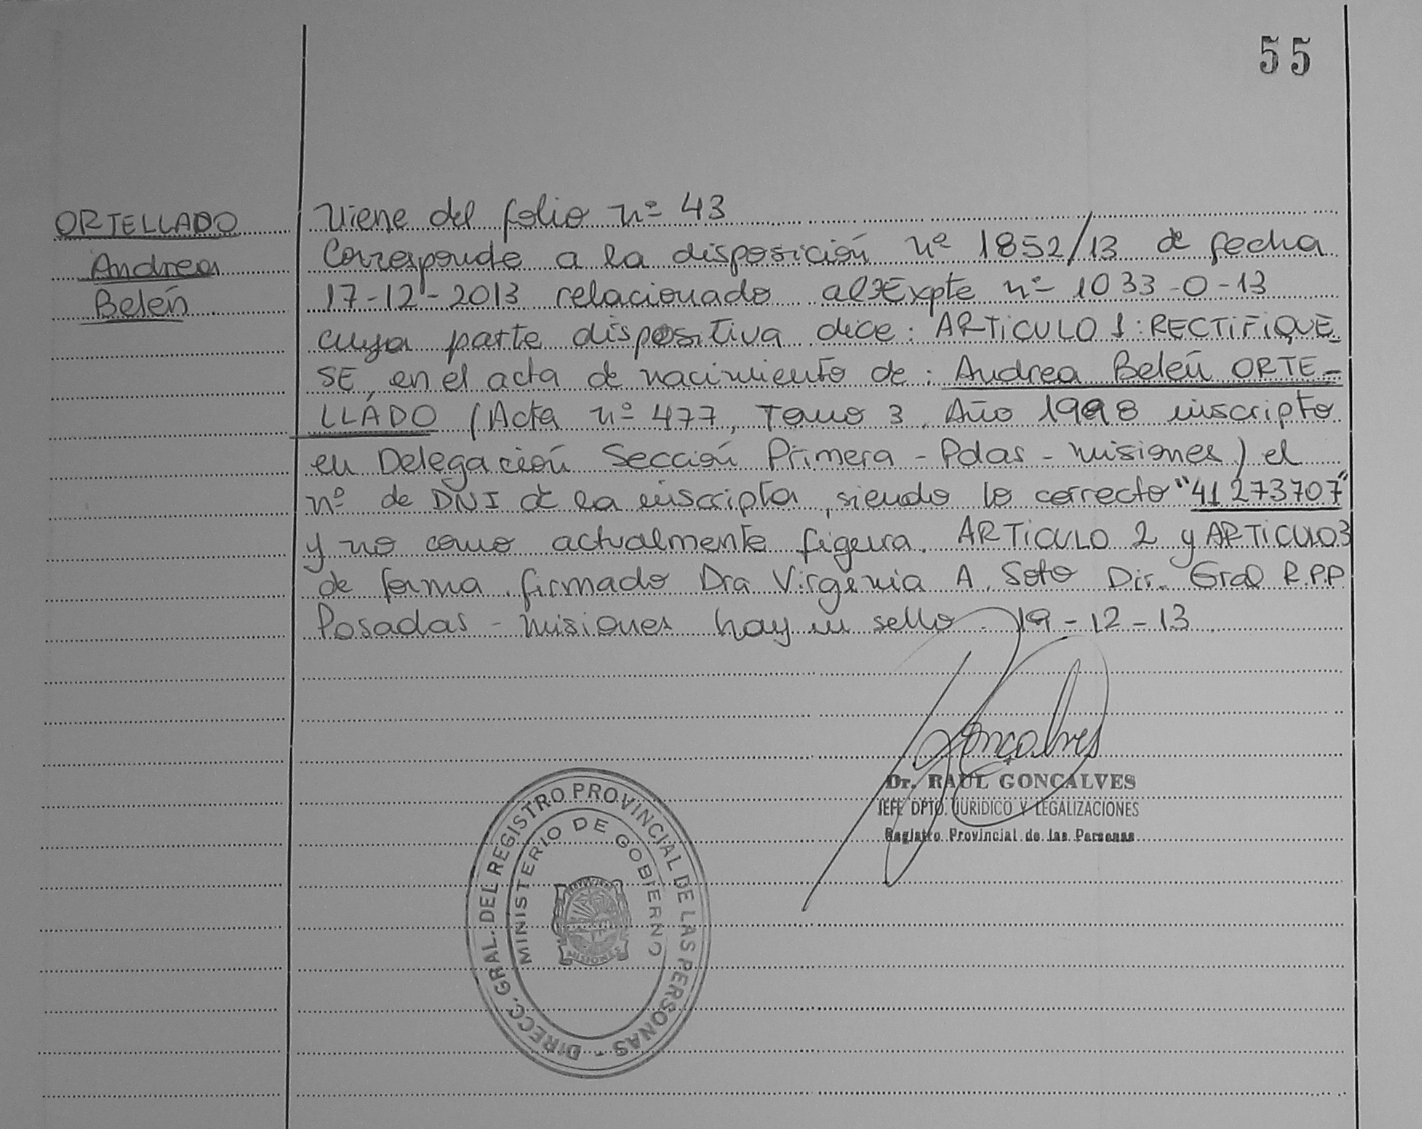 55
ORTELLADO
Andrea
Belén
Viene del folio nº 43
Corresponde a la disposición nº 1852/13 de fecha
17-12-2013 relacionado al Expte nº 1033-O-13
cuya parte dispositiva dice: ARTICULO 1: RECTIFIQUE
SE, en el acta de nacimiento de: Andrea Belén ORTE-
LLADO (Acta nº 477, Tomo 3, Año 1998 inscripto
en Delegación Sección Primera - Pdas - Misiones) el
nº de DNI de la inscripta, siendo lo correcto "41273707"
y no como actualmente figura. ARTICULO 2 y ARTICULO 3
de forma. firmado Dra Virginia A. Soto Dir. Gral R.P.P
Posadas - Misiones hay un sello. 19-12-13
Gonçalves
Dr. RAUL GONCALVES
JEFE DPTO. JURIDICO Y LEGALIZACIONES
Registro Provincial de las Personas
DIRECC. GRAL. DEL REGISTRO PROVINCIAL DE LAS PERSONAS -
MINISTERIO DE GOBIERNO
MISIONES